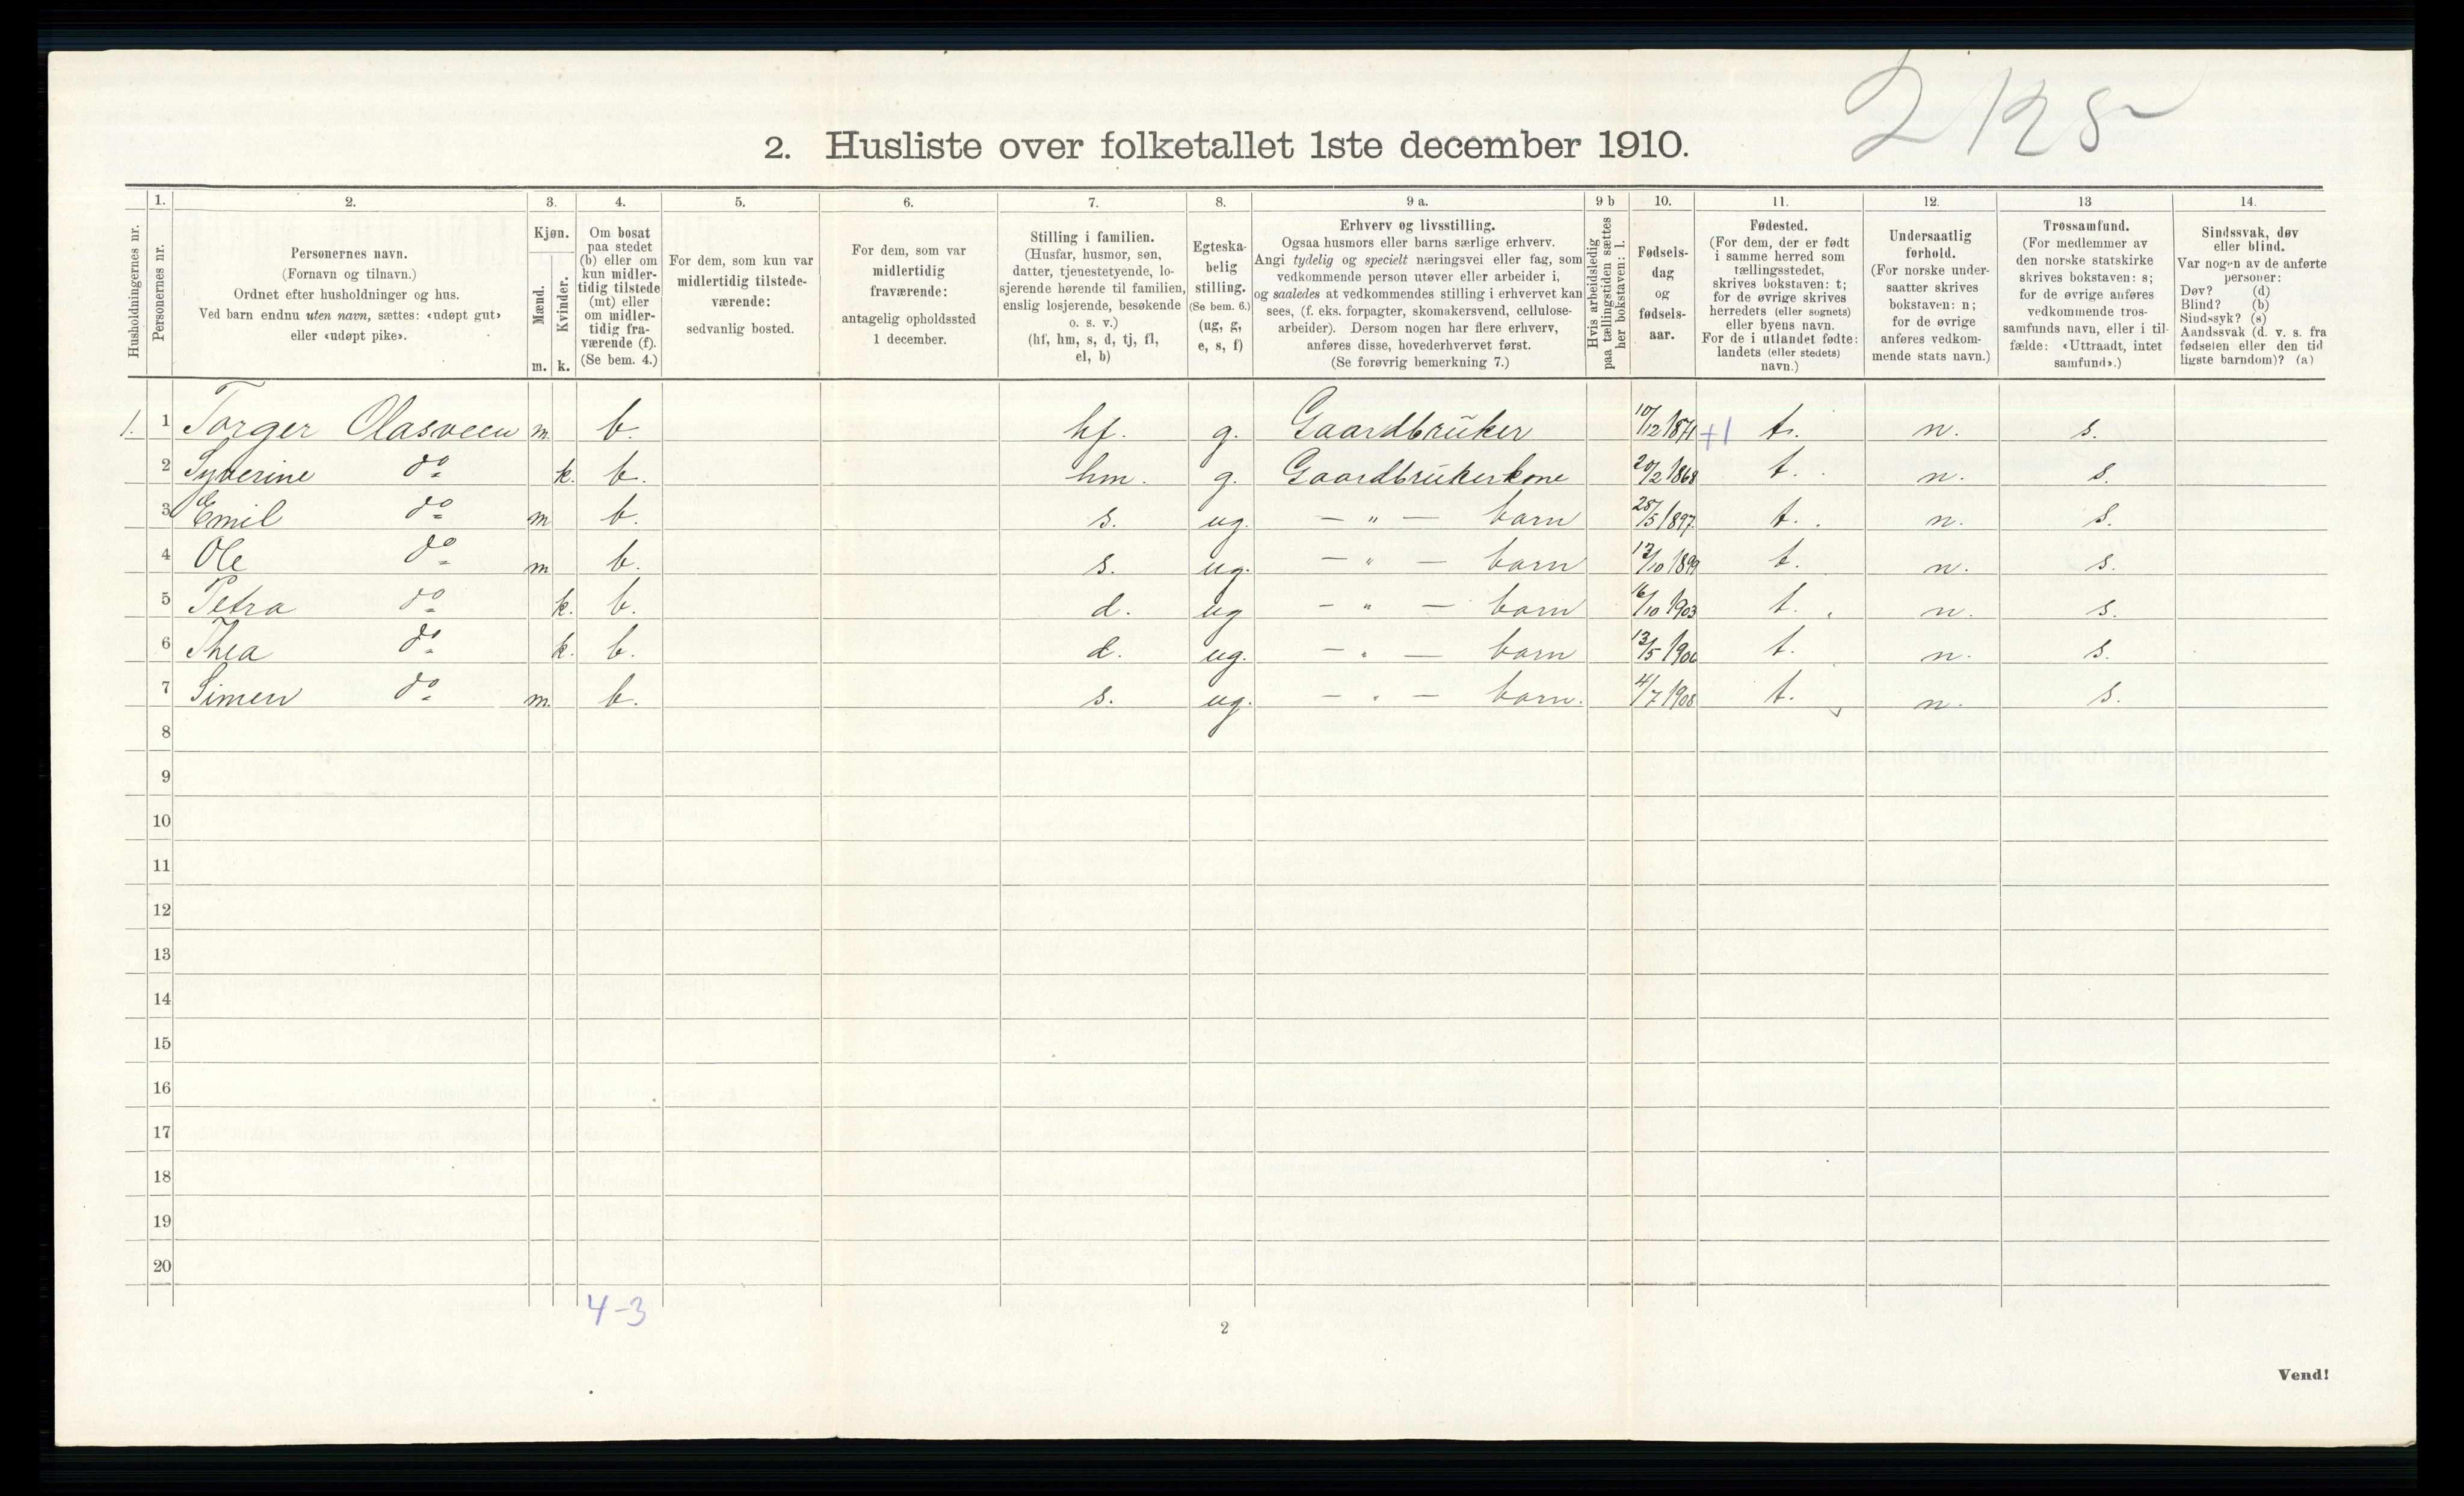 2128
2. Husliste over folketallet 1ste december 1910.
Husholdningernes nr.
1. Personernes nr.
2. Personernes navn. (Fornavn og tilnavn.) Ordnet efter husholdninger og hus. Ved barn endnu uten navn, sættes: «udøpt gut» eller «udøpt pike».
3. Kjøn. Mænd. m. Kvinder. k.
4. Om bosat paa stedet (b) eller om kun midlertidig tilstede (mt) eller om midlertidig fraværende (f). (Se bem. 4.)
5. For dem, som kun var midlertidig tilstedeværende: sedvanlig bosted.
6. For dem, som var midlertidig fraværende: antagelig opholdssted 1 december.
7. Stilling i familien. (Husfar, husmor, søn, datter, tjenestetyende, losjerende hørende til familien, enslig losjerende, besøkende o. s. v.) (hf, hm, s, d, tj, fl, el, b)
8. Egteskabelig stilling. (Se bem. 6.) (ug, g, e, s, f)
9 a. Erhverv og livsstilling. Ogsaa husmors eller barns særlige erhverv. Angi tydelig og specielt næringsvei eller fag, som vedkommende person utøver eller arbeider i, og saaledes at vedkommendes stilling i erhvervet kan sees, (f. eks. forpagter, skomakersvend, cellulosearbeider). Dersom nogen har flere erhverv, anføres disse, hovederhvervet først. (Se forøvrig bemerkning 7.)
9 b Hvis arbeidsledig paa tællingstiden sættes her bokstaven: l.
10. Fødselsdag og fødselsaar.
11. Fødested. (For dem, der er født i samme herred som tællingsstedet, skrives bokstaven: t; for de øvrige skrives herredets (eller sognets) eller byens navn. For de i utlandet fødte: landets (eller stedets) navn.)
12. Undersaatlig forhold. (For norske undersaatter skrives bokstaven: n; for de øvrige anføres vedkommende stats navn.)
13 Trossamfund. (For medlemmer av den norske statskirke skrives bokstaven: s; for de øvrige anføres vedkommende trossamfunds navn, eller i tilfælde: «Uttraadt, intet samfund».)
14. Sindssvak, døv eller blind. Var nogen av de anførte personer: Døv? (d) Blind? (b) Sindssyk? (s) Aandssvak (d. v. s. fra fødselen eller den tidligste barndom)? (a)
1. 1 Torger Olasveen m. b. hf. g. Gaardbrüker 10/12 1871 +1 t. n. s.
2 Syverine do k. b. hm. g. Gaardbrükerkone 20/2 1868 t. n. s.
3 Emil do m b. s. ug. — " — barn 28/5 1897. t. n. s.
4 Ole do m b. s. ug. — " — barn 13/10 1899 t. n. s.
5 Petra do k. b. d. ug — " — barn 16/10 1903 t. n. s.
6 Thea do k. b. d. ug. — " — barn 13/5 1906 t. n. s.
7 Simen do m. b. s. ug. — " — barn. 4/7 1908 t. n. s.
8
9
10
11
12
13
14
15
16
17
18
19
20
4-3
2
Vend!